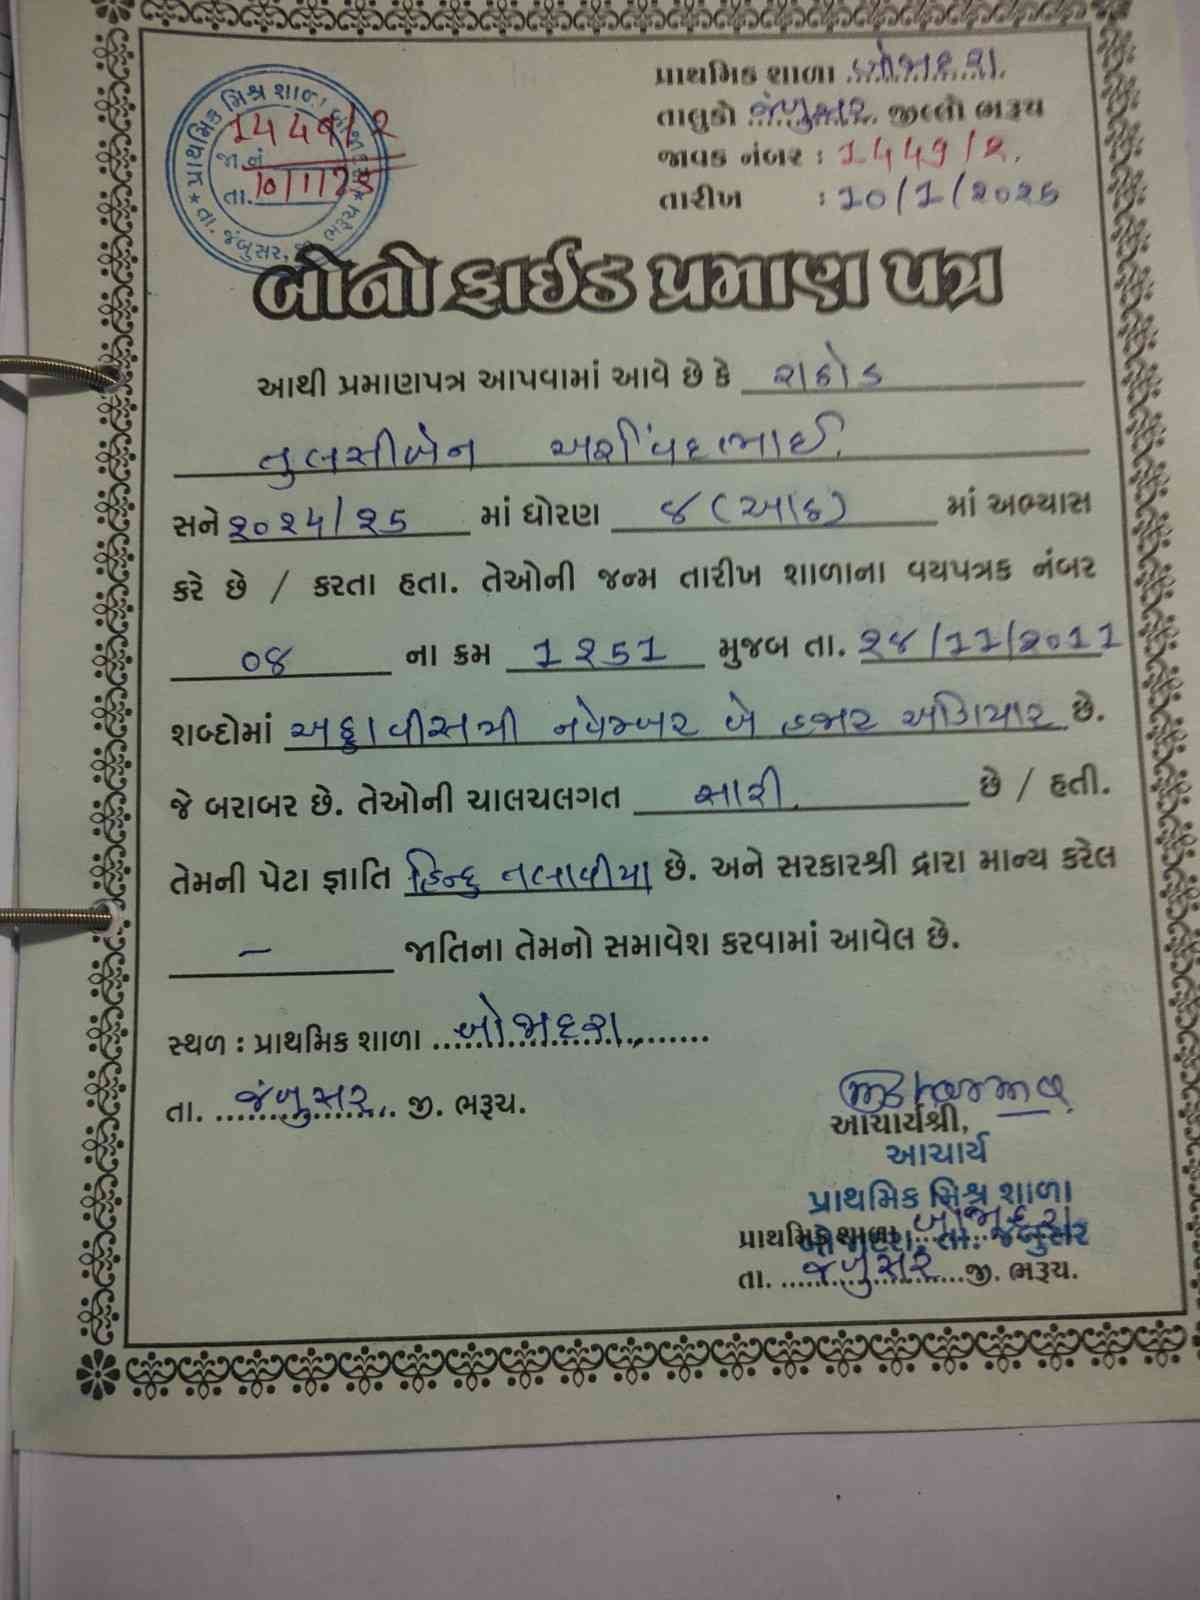 પ્રાથમિક શાળા બોજાદરા
તાલુકો જંબુસર જીલ્લો ભરૂચ
જાવક નંબર : 1449/2.
તારીખ : 10/1/2025
પ્રાથમિક મિશ્ર શાળા બોજાદરા
1449/2
જા.નં
તા. 10/1/25
તા. જંબુસર, જી. ભરૂચ
બોનોફાઈડ પ્રમાણ પત્ર
આથી પ્રમાણપત્ર આપવામાં આવે છે કે રાઠોડ
તુલસીબેન અરવિંદભાઈ
સને ૨૦૨૪/૨૫ માં ધોરણ ૮ (આઠ) માં અભ્યાસ
કરે છે / કરતા હતા. તેઓની જન્મ તારીખ શાળાના વયપત્રક નંબર
૦૪ ના ક્રમ 1251 મુજબ તા. ૨૮/11/૨૦11
શબ્દોમાં અઠ્ઠાવીસમી નવેમ્બર બે હજાર અગિયાર છે.
જે બરાબર છે. તેઓની ચાલચલગત સારી છે / હતી.
તેમની પેટા જ્ઞાતિ હિન્દુ તલાવીયા છે. અને સરકારશ્રી દ્વારા માન્ય કરેલ
– જાતિના તેમનો સમાવેશ કરવામાં આવેલ છે.
સ્થળ : પ્રાથમિક શાળા બોજાદરા
તા. જંબુસર જી. ભરૂચ.
આચાર્યશ્રી,
આચાર્ય
પ્રાથમિક મિશ્ર શાળા
બોજાદરા, તા. જંબુસર
પ્રાથમિક શાળા બોજાદરા
તા. જંબુસર જી. ભરૂચ.